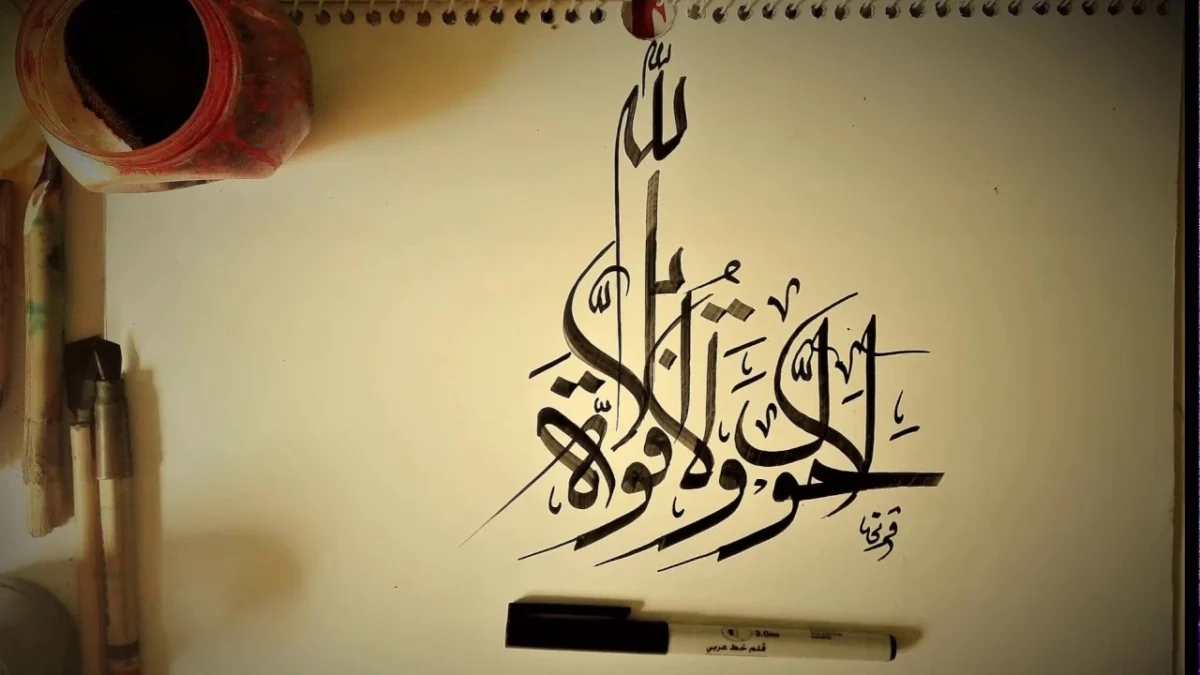 لا حول ولا قوة إلا بالله
3.0mm
قلم خط عربي